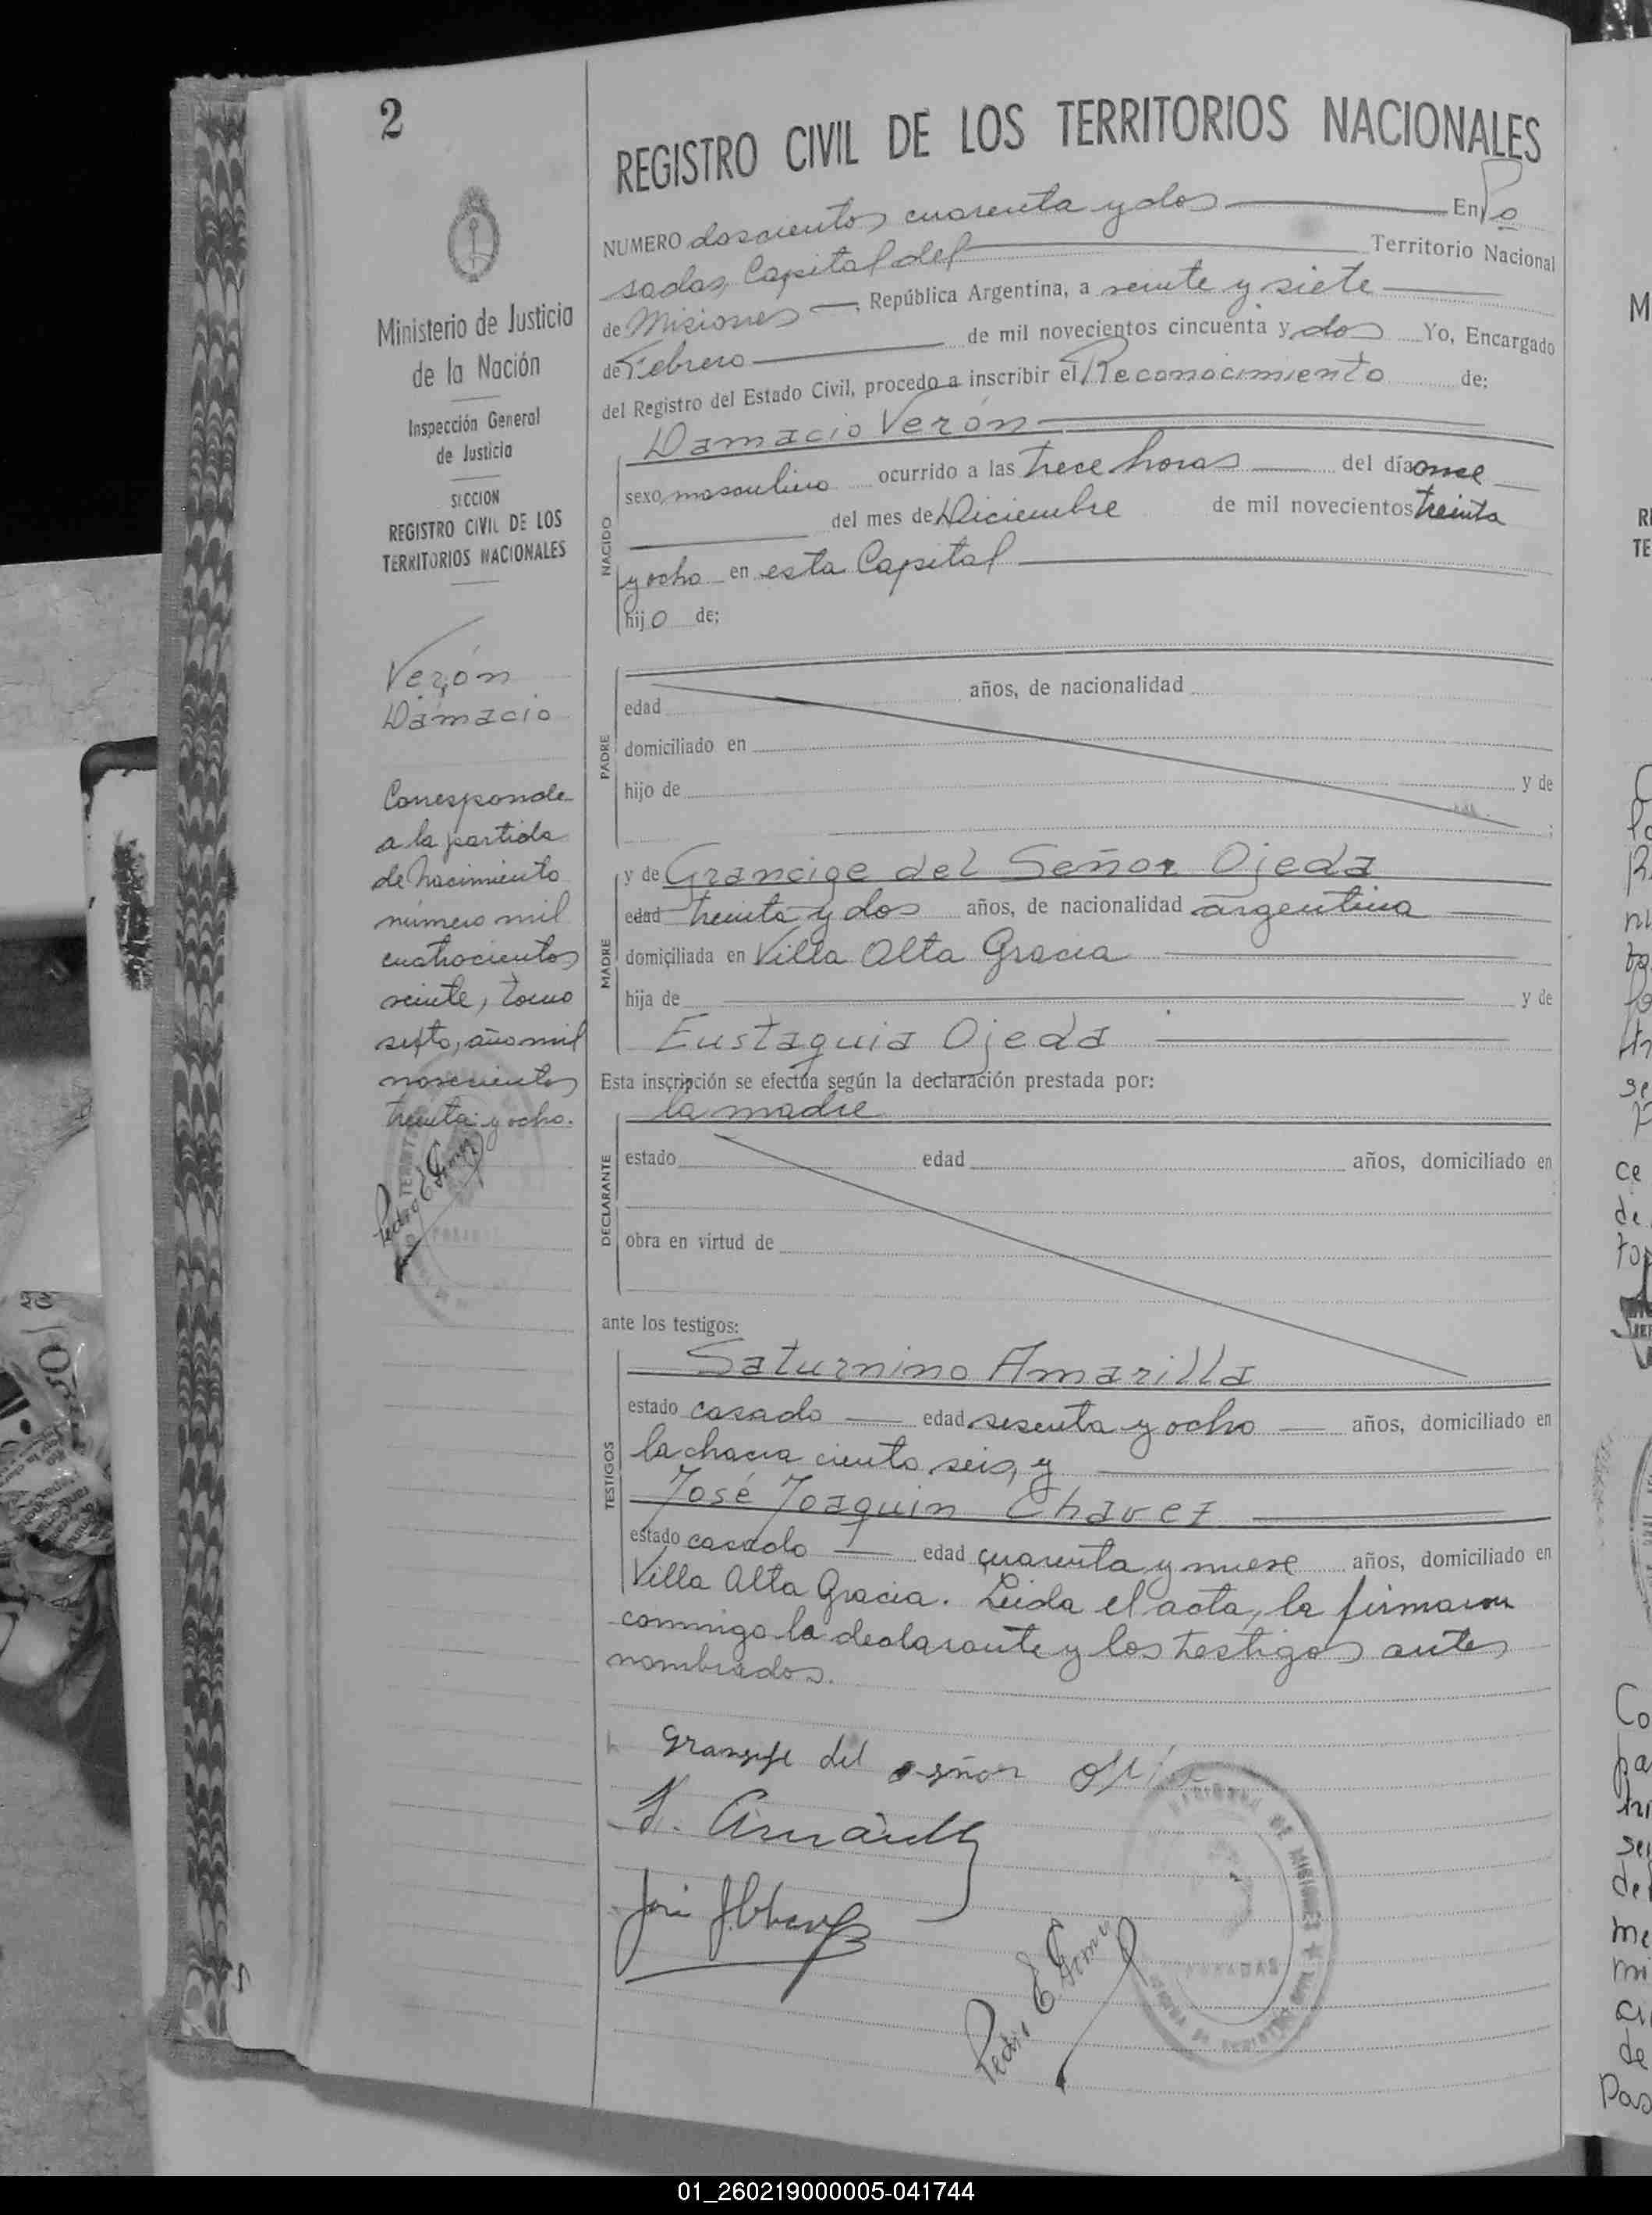 2
REGISTRO CIVIL DE LOS TERRITORIOS NACIONALES
NUMERO doscientos cuarenta y dos En Po
sadas, Capital del Territorio Nacional
de Misiones, República Argentina, a veinte y siete
de Febrero de mil novecientos cincuenta y dos Yo, Encargado
del Registro del Estado Civil, procedo a inscribir el Reconocimiento de:
Damacio Verón
NACIDO
sexo masculino ocurrido a las trece horas del día once
del mes de Diciembre de mil novecientos treinta
y ocho en esta Capital
hijo de;
PADRE
edad años, de nacionalidad
domiciliado en
hijo de y de
MADRE
y de Grancige del Señor Ojeda
edad treinta y dos años, de nacionalidad argentina
domiciliada en Villa Alta Gracia
hija de y de
Eustaquia Ojeda
Esta inscripción se efectúa según la declaración prestada por:
DECLARANTE
la madre
estado edad años, domiciliado en
obra en virtud de
ante los testigos:
TESTIGOS
Saturnino Amarilla
estado casado edad sesenta y ocho años, domiciliado en
la chacra ciento seis, y
José Joaquin Chavez
estado casado edad cuarenta y nueve años, domiciliado en
Villa Alta Gracia. Leida el acta, la firmaron
conmigo la declarante y los testigos antes
nombrados.
del señor
Pedro E
Ministerio de Justicia
de la Nación
Inspección General
de Justicia
SECCION
REGISTRO CIVIL DE LOS
TERRITORIOS NACIONALES
Verón
Damacio
Corresponde
a la partida
de nacimiento
número mil
cuatrocientos
veinte, tomo
sexto, año mil
novecientos
treinta y ocho.
Pedro E
01_260219000005-041744